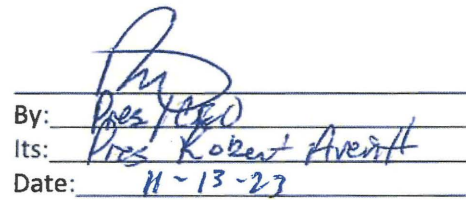 By: Pres/CEO
Its: Pres Robert Averitt
Date: 11-13-23